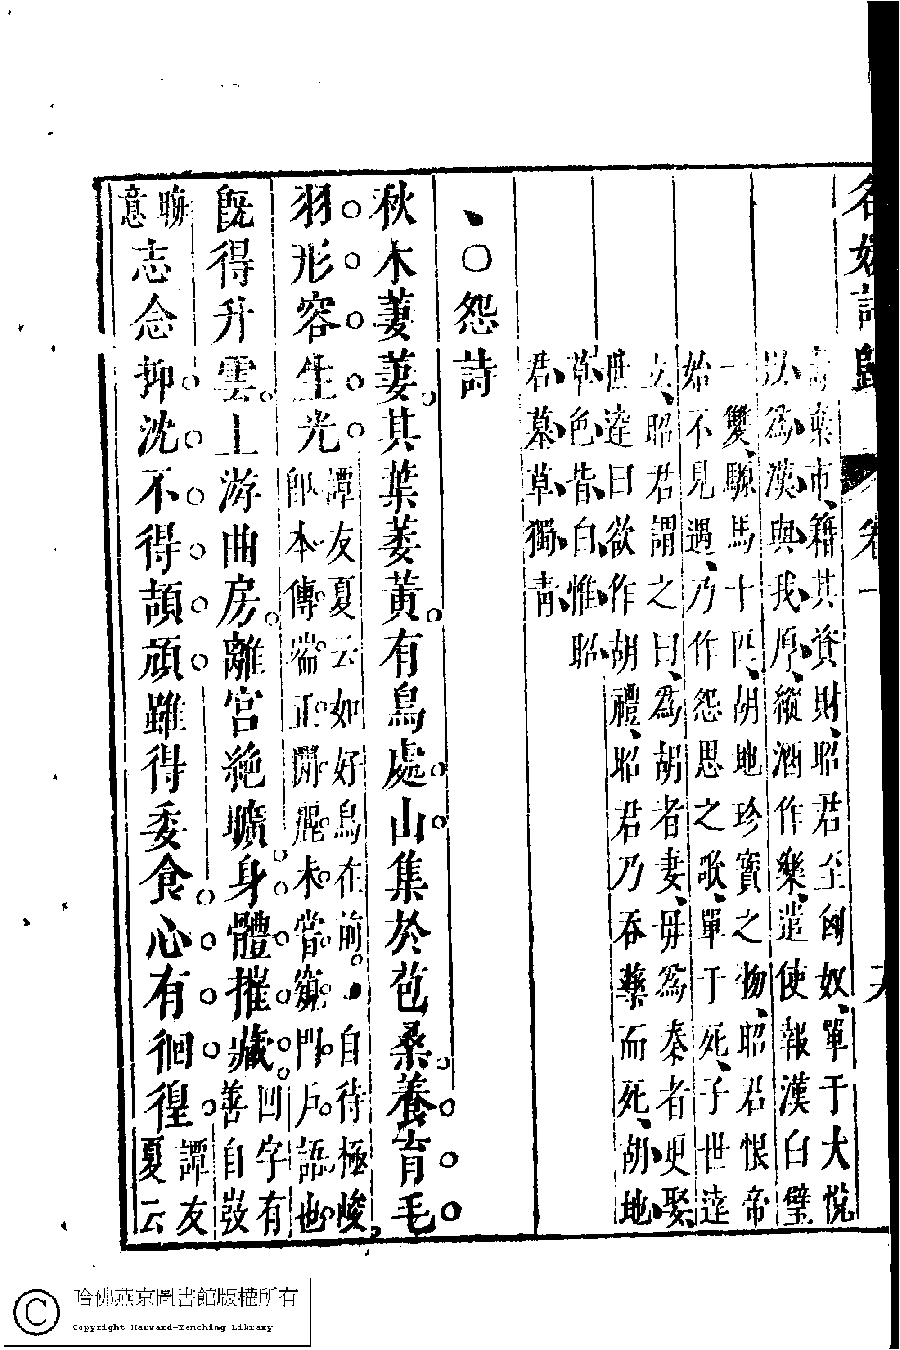 名媛詩歸 卷一
棄市籍其資財昭君至匈奴單于大悅
以為漢與我厚縱酒作樂遣使報漢白璧
一雙騵馬十匹胡地珍寶之物昭君恨帝
始不見遇乃作怨思之歌單于死子世達
立昭君謂之曰為胡者妻毋為秦者更娶
世達曰欲作胡禮昭君乃吞藥而死胡地
草色昔白惟昭
君墓草獨青
怨詩
秋木萋萋其葉萎黃有鳥處山集於苞桑養育毛
羽形容生光
譚友夏云如好鳥在前自待極峻
即本傳端正閒麗未嘗窺門戶語也
既得升雲上游曲房離宮絕曠身體摧藏
四字有
善自
意
志念抑沈不得頡頏雖得委食心有徊徨
譚友
夏云
哈佛燕京圖書館版權所有
Copyright Harvard-Yenching Library